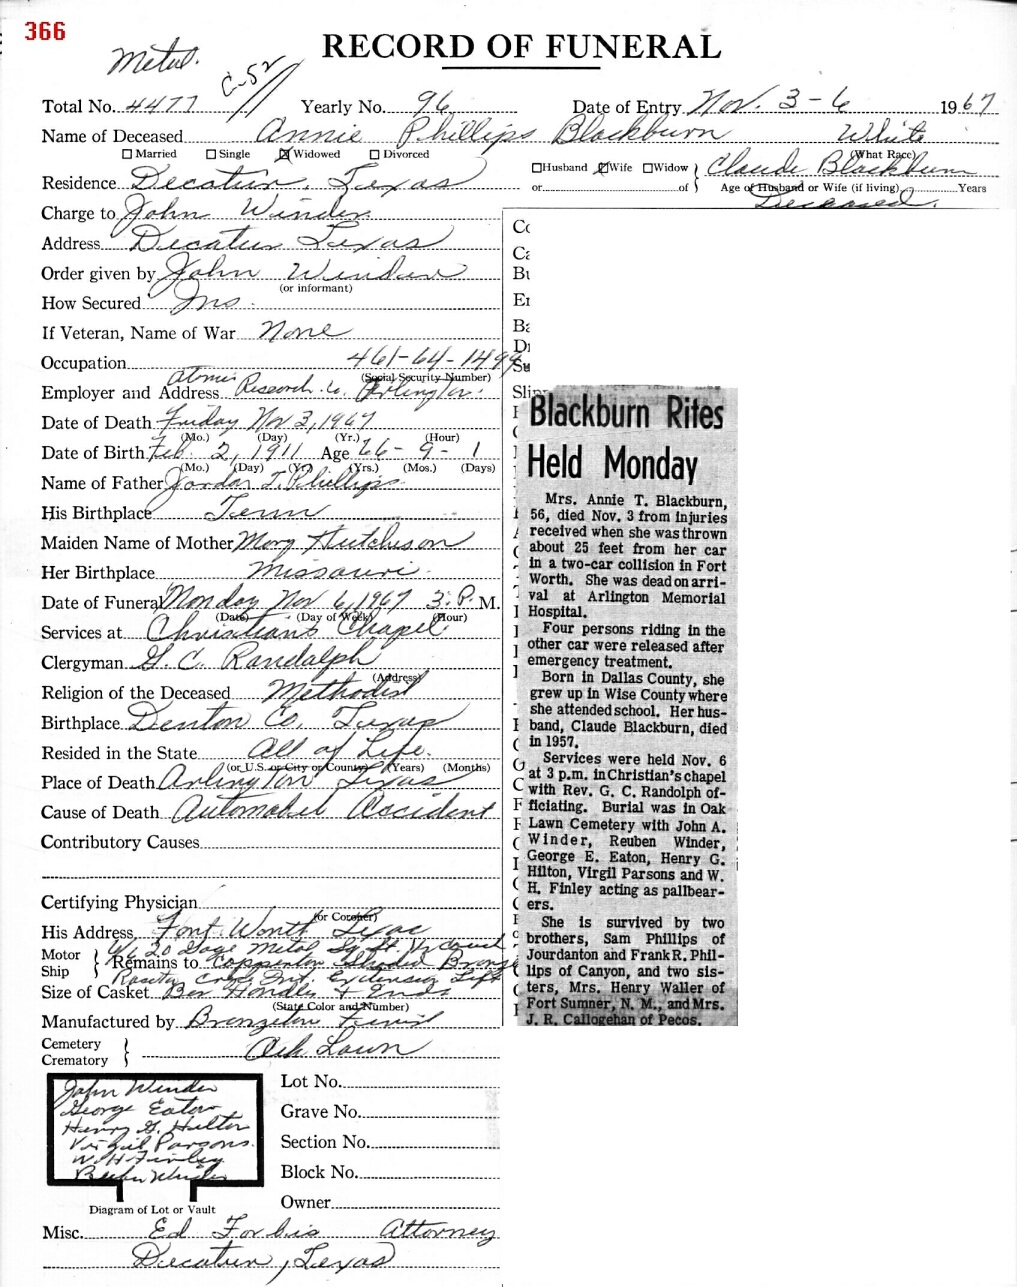 366
RECORD OF FUNERAL
Metal. C-52
Total No. 4477 Yearly No. 96 Date of Entry Nov. 3-6 1967
Name of Deceased Annie Phillips Blackburn White
(What Race)
Married Single Widowed Divorced
Husband Wife Widow Claude Blackburn
or of Age of Husband or Wife (if living) Years
Deceased.
Residence Decatur, Texas
Charge to John Winder
Address Decatur Texas
Order given by John Winder
(or informant)
How Secured Ins.
If Veteran, Name of War None
Occupation 461-64-149
(Social Security Number)
Employer and Address Atomic Research Co. Arlington.
Date of Death Friday Nov 3, 1967
(Mo.) (Day) (Yr.) (Hour)
Date of Birth Feb. 2, 1911 Age 56-9-1
(Mo.) (Day) (Yr.) (Yrs.) (Mos.) (Days)
Name of Father Jordan T. Phillips
His Birthplace Tenn
Maiden Name of Mother Mary Hutchison
Her Birthplace Missouri
Date of Funeral Monday Nov 6, 1967 3: P. M.
(Date) (Day of Week) (Hour)
Services at Christian's Chapel
Clergyman G. C. Randalph
(Address)
Religion of the Deceased Methodist
Birthplace Denton Co. Texas
Resided in the State All of Life.
(or U.S. or City or County) (Years) (Months)
Place of Death Arlington Texas
Cause of Death Automobil Accident
Contributory Causes
Certifying Physician
(or Coroner)
His Address Fort Worth Texas
Motor
Ship
20 Gage Metal Sq
Remains to Coppertone Shaded Bronze
Size of Casket Bar Handles & Ends
(State Color and Number)
Manufactured by
Cemetery
Crematory
Oak Lawn
John Winder
George Eaton
Henry G. Hilton
Virgil Parsons
W. H Finley
Reuben Winder
Diagram of Lot or Vault
Lot No.
Grave No.
Section No.
Block No.
Owner
Misc. Ed Forbis Attorney
Decatur, Texas
Blackburn Rites
Held Monday
Mrs. Annie T. Blackburn,
56, died Nov. 3 from injuries
received when she was thrown
about 25 feet from her car
in a two-car collision in Fort
Worth. She was dead on arri-
val at Arlington Memorial
Hospital.
Four persons riding in the
other car were released after
emergency treatment.
Born in Dallas County, she
grew up in Wise County where
she attended school. Her hus-
band, Claude Blackburn, died
in 1957.
Services were held Nov. 6
at 3 p.m. in Christian's chapel
with Rev. G. C. Randolph of-
ficiating. Burial was in Oak
Lawn Cemetery with John A.
Winder, Reuben Winder,
George E. Eaton, Henry G.
Hilton, Virgil Parsons and W.
H. Finley acting as pallbear-
ers.
She is survived by two
brothers, Sam Phillips of
Jourdanton and Frank R. Phil-
lips of Canyon, and two sis-
ters, Mrs. Henry Waller of
Fort Sumner, N. M., and Mrs.
J. R. Callogehan of Pecos.